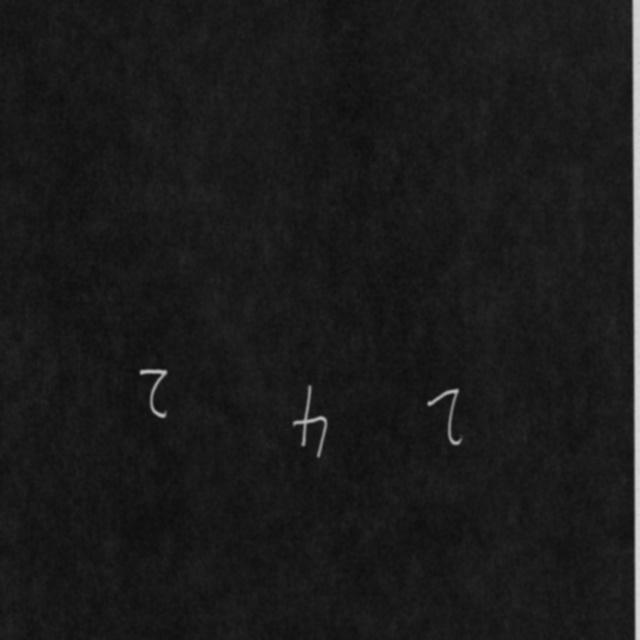 2 4 2